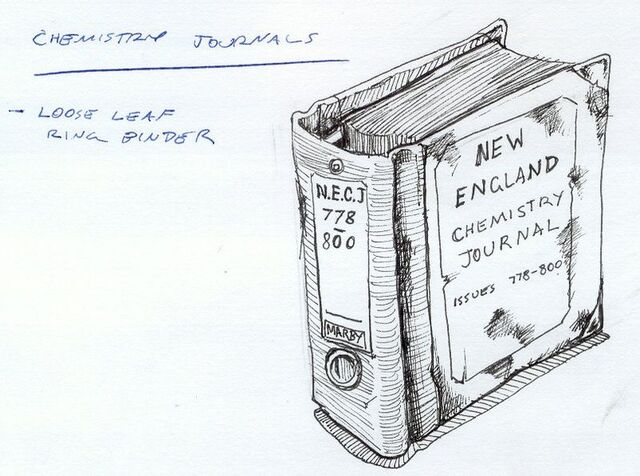 CHEMISTRY JOURNALS
- LOOSE LEAF
RING BINDER
N.E.C.J
778
-
800
MARBY
NEW
ENGLAND
CHEMISTRY
JOURNAL
ISSUES 778-800